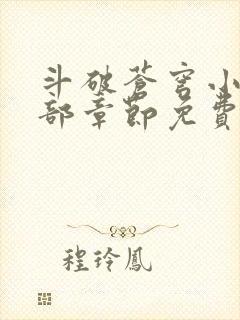 斗破苍穹小
部章節免費
程玲鳳